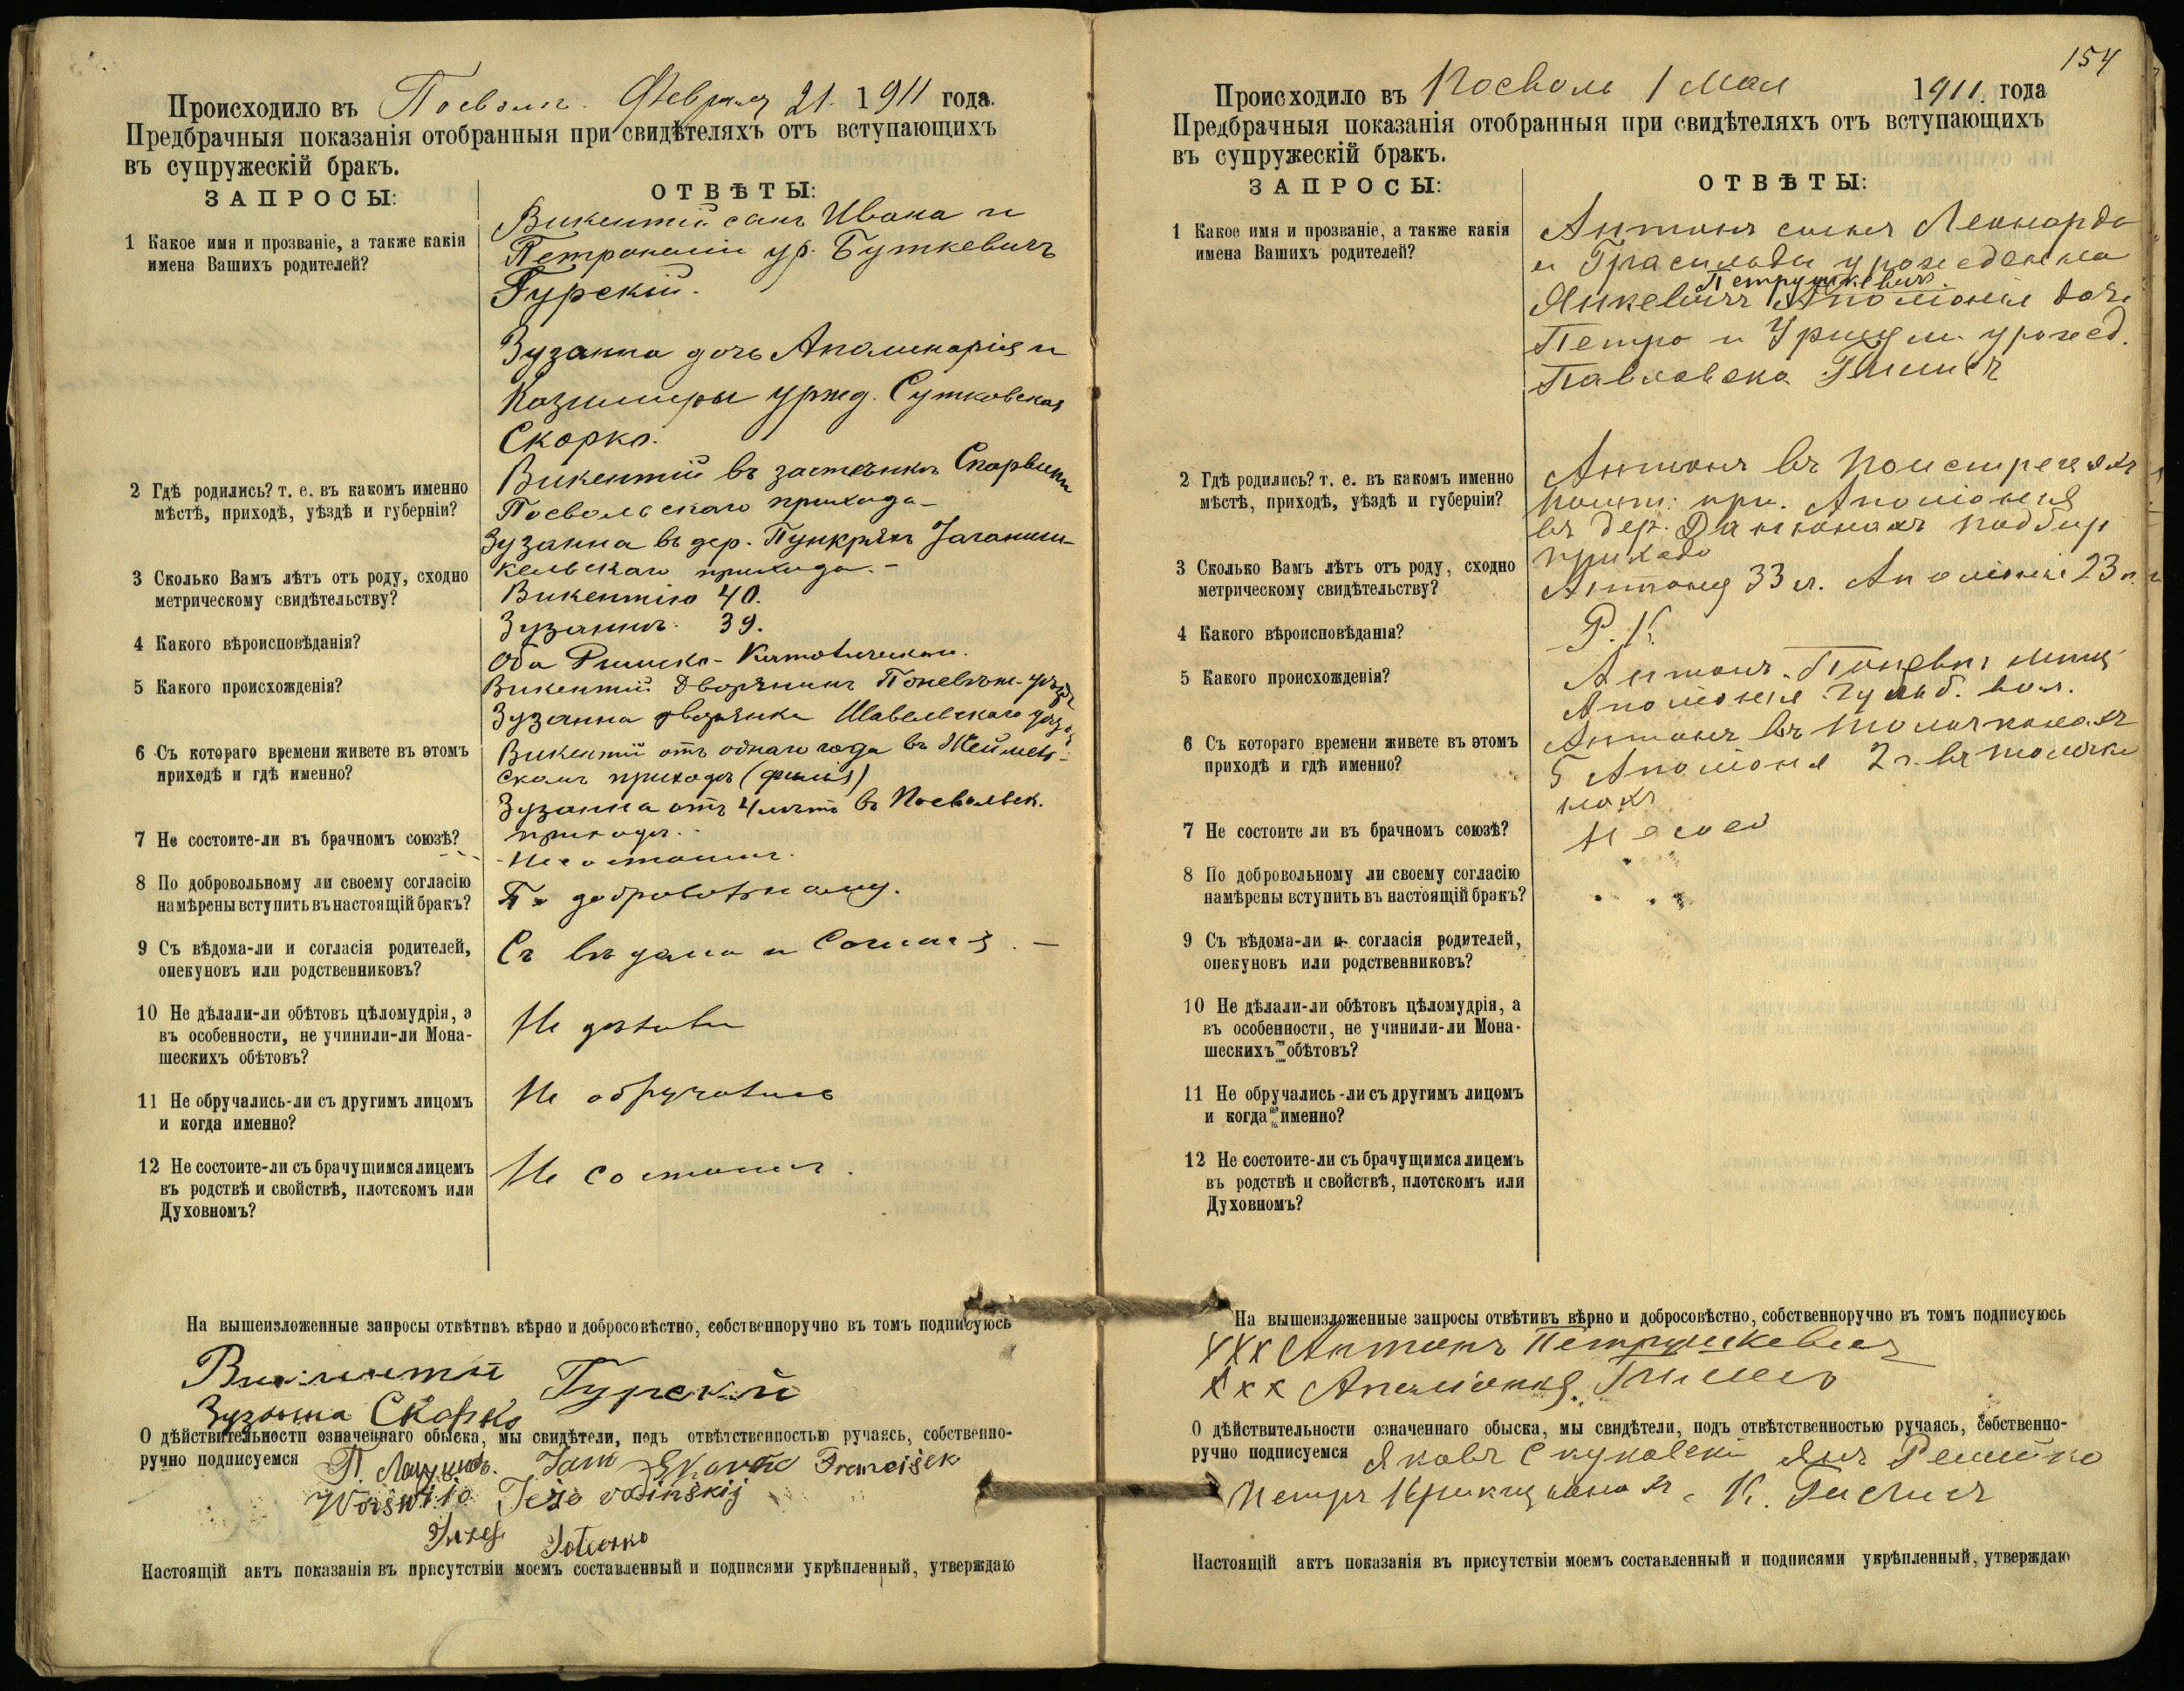 Происходило въ Посволь. Февраля 21. 1911 года.
Предбрачныя показанія отобранныя при свидѣтеляхъ отъ вступающихъ
въ супружескій бракъ.
ЗАПРОСЫ:
ОТВѢТЫ:
1 Какое имя и прозваніе, а также какія
имена Вашихъ родителей?
Викентій сынъ Ивана и
Петронеліи ур. Буткевичъ
Гурскій.
Зузанна дочь Аполинарія и
Казимиры урожд. Сутковская
Скорко.
2 Гдѣ родились? т. е. въ какомъ именно
мѣстѣ, приходѣ, уѣздѣ и губерніи?
Викентій въ застѣнкѣ
Посвольскаго прихода –
Зузанна въ дер.
прихода. –
3 Сколько Вамъ лѣтъ отъ роду, сходно
метрическому свидѣтельству?
Викентію 40.
Зузаннѣ. 39.
4 Какого вѣроисповѣданія?
Оба Римско-Католическаго.
5 Какого происхожденія?
Викентій Дворянинъ Поневѣж. уѣзда
Зузанна дворянка Шавельскаго уѣзда
6 Съ котораго времени живете въ этомъ
приходѣ и гдѣ именно?
Викентій отъ одного года въ Жеймель-
скомъ приходѣ (филія)
Зузанна отъ 4 лѣтъ въ Посвольск.
приходѣ.
7 Не состоите-ли въ брачномъ союзѣ?
Не состоимъ.
8 По добровольному ли своему согласію
намѣрены вступить въ настоящій бракъ?
По добровольному.
9 Съ вѣдома-ли и согласія родителей,
опекуновъ или родственниковъ?
Съ вѣдома и согласія. –
10 Не дѣлали-ли обѣтовъ цѣломудрія, а
въ особенности, не учинили-ли Мона-
шескихъ обѣтовъ?
Не дѣлали
11 Не обручались-ли съ другимъ лицомъ
и когда именно?
Не обручались
12 Не состоите-ли съ брачущимся лицемъ
въ родствѣ и свойствѣ, плотскомъ или
Духовномъ?
Не состоимъ.
На вышеизложенные запросы отвѣтивъ вѣрно и добросовѣстно, собственноручно въ томъ подписуюсь
Викентій Гурскій
Зузанна Скорко
О дѣйствительности означеннаго обыска, мы свидѣтели, подъ отвѣтственностью ручаясь, собственно-
ручно подписуемся Jan Skorko Franciśek
Настоящій актъ показанія въ присутствіи моемъ составленный и подписями укрѣпленный, утверждаю
154
Происходило въ Посволь 1 Мая 1911. года
Предбрачныя показанія отобранныя при свидѣтеляхъ отъ вступающихъ
въ супружескій бракъ.
ЗАПРОСЫ:
ОТВѢТЫ:
1 Какое имя и прозваніе, а также какія
имена Вашихъ родителей?
Антонъ сынъ Леонарда
и урожденна
Петрушкевичъ.
Янкевичъ Аполіонія дочь
Петра и урожед.
Павловска
2 Гдѣ родились? т. е. въ какомъ именно
мѣстѣ, приходѣ, уѣздѣ и губерніи?
Антонъ въ
при. Аполіонія
въ дер.
прихода
3 Сколько Вамъ лѣтъ отъ роду, сходно
метрическому свидѣтельству?
Антоня 33 л. Аполіоніе 23 л.
4 Какого вѣроисповѣданія?
Р. К.
5 Какого происхожденія?
Антонъ.
Аполіонія вол.
6 Съ котораго времени живете въ этомъ
приходѣ и гдѣ именно?
Антонъ въ
5 Аполіонія 2 г. въ
7 Не состоите ли въ брачномъ союзѣ?
8 По добровольному ли своему согласію
намѣрены вступить въ настоящій бракъ?
9 Съ вѣдома-ли и согласія родителей,
опекуновъ или родственниковъ?
10 Не дѣлали-ли обѣтовъ цѣломудрія, а
въ особенности, не учинили-ли Мона-
шескихъ обѣтовъ?
11 Не обручались-ли съ другимъ лицомъ
и когда именно?
12 Не состоите-ли съ брачущимся лицемъ
въ родствѣ и свойствѣ, плотскомъ или
Духовномъ?
На вышеизложенные запросы отвѣтивъ вѣрно и добросовѣстно, собственноручно въ томъ подписуюсь
ХХХ Антонъ Петрушкевичъ
ххх Аполіонія
О дѣйствительности означеннаго обыска, мы свидѣтели, подъ отвѣтственностью ручаясь, собственно-
ручно подписуемся Яковъ Янъ
Петръ К.
Настоящій актъ показанія въ присутствіи моемъ составленный и подписями укрѣпленный, утверждаю